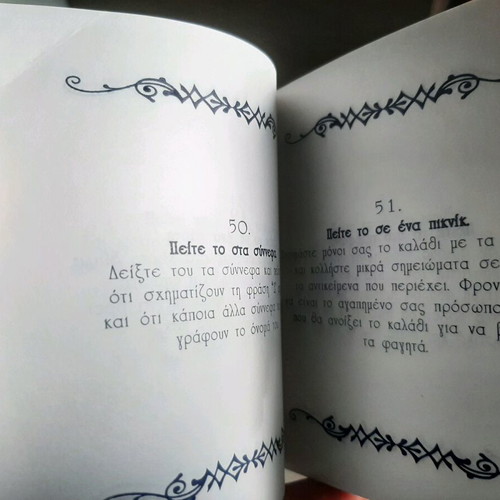 50.
Πείτε το στα σύννεφα
Δείξτε του τα σύννεφα και
ότι σχηματίζουν τη φράση
και ότι κάποια άλλα σύννεφα
γράφουν το όνομά του
51.
Πείτε το σε ένα πικνίκ.
μόνοι σας το καλάθι με τα
κολλήστε μικρά σημειώματα σε
αντικείμενα που περιέχει. Φρον
είναι το αγαπημένο σας πρόσωπο
που θα ανοίξει το καλάθι για να
τα φαγητά.